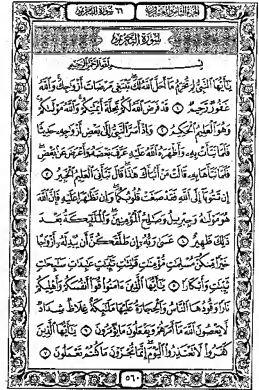 الجزء الثامن والعشرون ٦٦ سورة التحريم
سُورَةُ التَّحْرِيمِ
بِسْمِ ٱللَّهِ ٱلرَّحْمَٰنِ ٱلرَّحِيمِ
يَٰٓأَيُّهَا ٱلنَّبِيُّ لِمَ تُحَرِّمُ مَآ أَحَلَّ ٱللَّهُ لَكَ تَبْتَغِي مَرْضَاتَ أَزْوَٰجِكَ وَٱللَّهُ
غَفُورٌ رَّحِيمٌ ١ قَدْ فَرَضَ ٱللَّهُ لَكُمْ تَحِلَّةَ أَيْمَٰنِكُمْ وَٱللَّهُ مَوْلَىٰكُمْ
وَهُوَ ٱلْعَلِيمُ ٱلْحَكِيمُ ٢ وَإِذْ أَسَرَّ ٱلنَّبِيُّ إِلَىٰ بَعْضِ أَزْوَٰجِهِ حَدِيثًا
فَلَمَّا نَبَّأَتْ بِهِ وَأَظْهَرَهُ ٱللَّهُ عَلَيْهِ عَرَّفَ بَعْضَهُ وَأَعْرَضَ عَنْ بَعْضٍ
فَلَمَّا نَبَّأَهَا بِهِ قَالَتْ مَنْ أَنۢبَأَكَ هَٰذَا قَالَ نَبَّأَنِيَ ٱلْعَلِيمُ ٱلْخَبِيرُ ٣
إِن تَتُوبَآ إِلَى ٱللَّهِ فَقَدْ صَغَتْ قُلُوبُكُمَا وَإِن تَظَٰهَرَا عَلَيْهِ فَإِنَّ ٱللَّهَ
هُوَ مَوْلَىٰهُ وَجِبْرِيلُ وَصَٰلِحُ ٱلْمُؤْمِنِينَ وَٱلْمَلَٰٓئِكَةُ بَعْدَ
ذَٰلِكَ ظَهِيرٌ ٤ عَسَىٰ رَبُّهُ إِن طَلَّقَكُنَّ أَن يُبْدِلَهُ أَزْوَٰجًا
خَيْرًا مِّنكُنَّ مُسْلِمَٰتٍ مُّؤْمِنَٰتٍ قَٰنِتَٰتٍ تَٰٓئِبَٰتٍ عَٰبِدَٰتٍ سَٰٓئِحَٰتٍ
ثَيِّبَٰتٍ وَأَبْكَارًا ٥ يَٰٓأَيُّهَا ٱلَّذِينَ ءَامَنُوا۟ قُوٓا۟ أَنفُسَكُمْ وَأَهْلِيكُمْ
نَارًا وَقُودُهَا ٱلنَّاسُ وَٱلْحِجَارَةُ عَلَيْهَا مَلَٰٓئِكَةٌ غِلَاظٌ شِدَادٌ
لَّا يَعْصُونَ ٱللَّهَ مَآ أَمَرَهُمْ وَيَفْعَلُونَ مَا يُؤْمَرُونَ ٦ يَٰٓأَيُّهَا ٱلَّذِينَ
كَفَرُوا۟ لَا تَعْتَذِرُوا۟ ٱلْيَوْمَ إِنَّمَا تُجْزَوْنَ مَا كُنتُمْ تَعْمَلُونَ ٧
٥٦٠